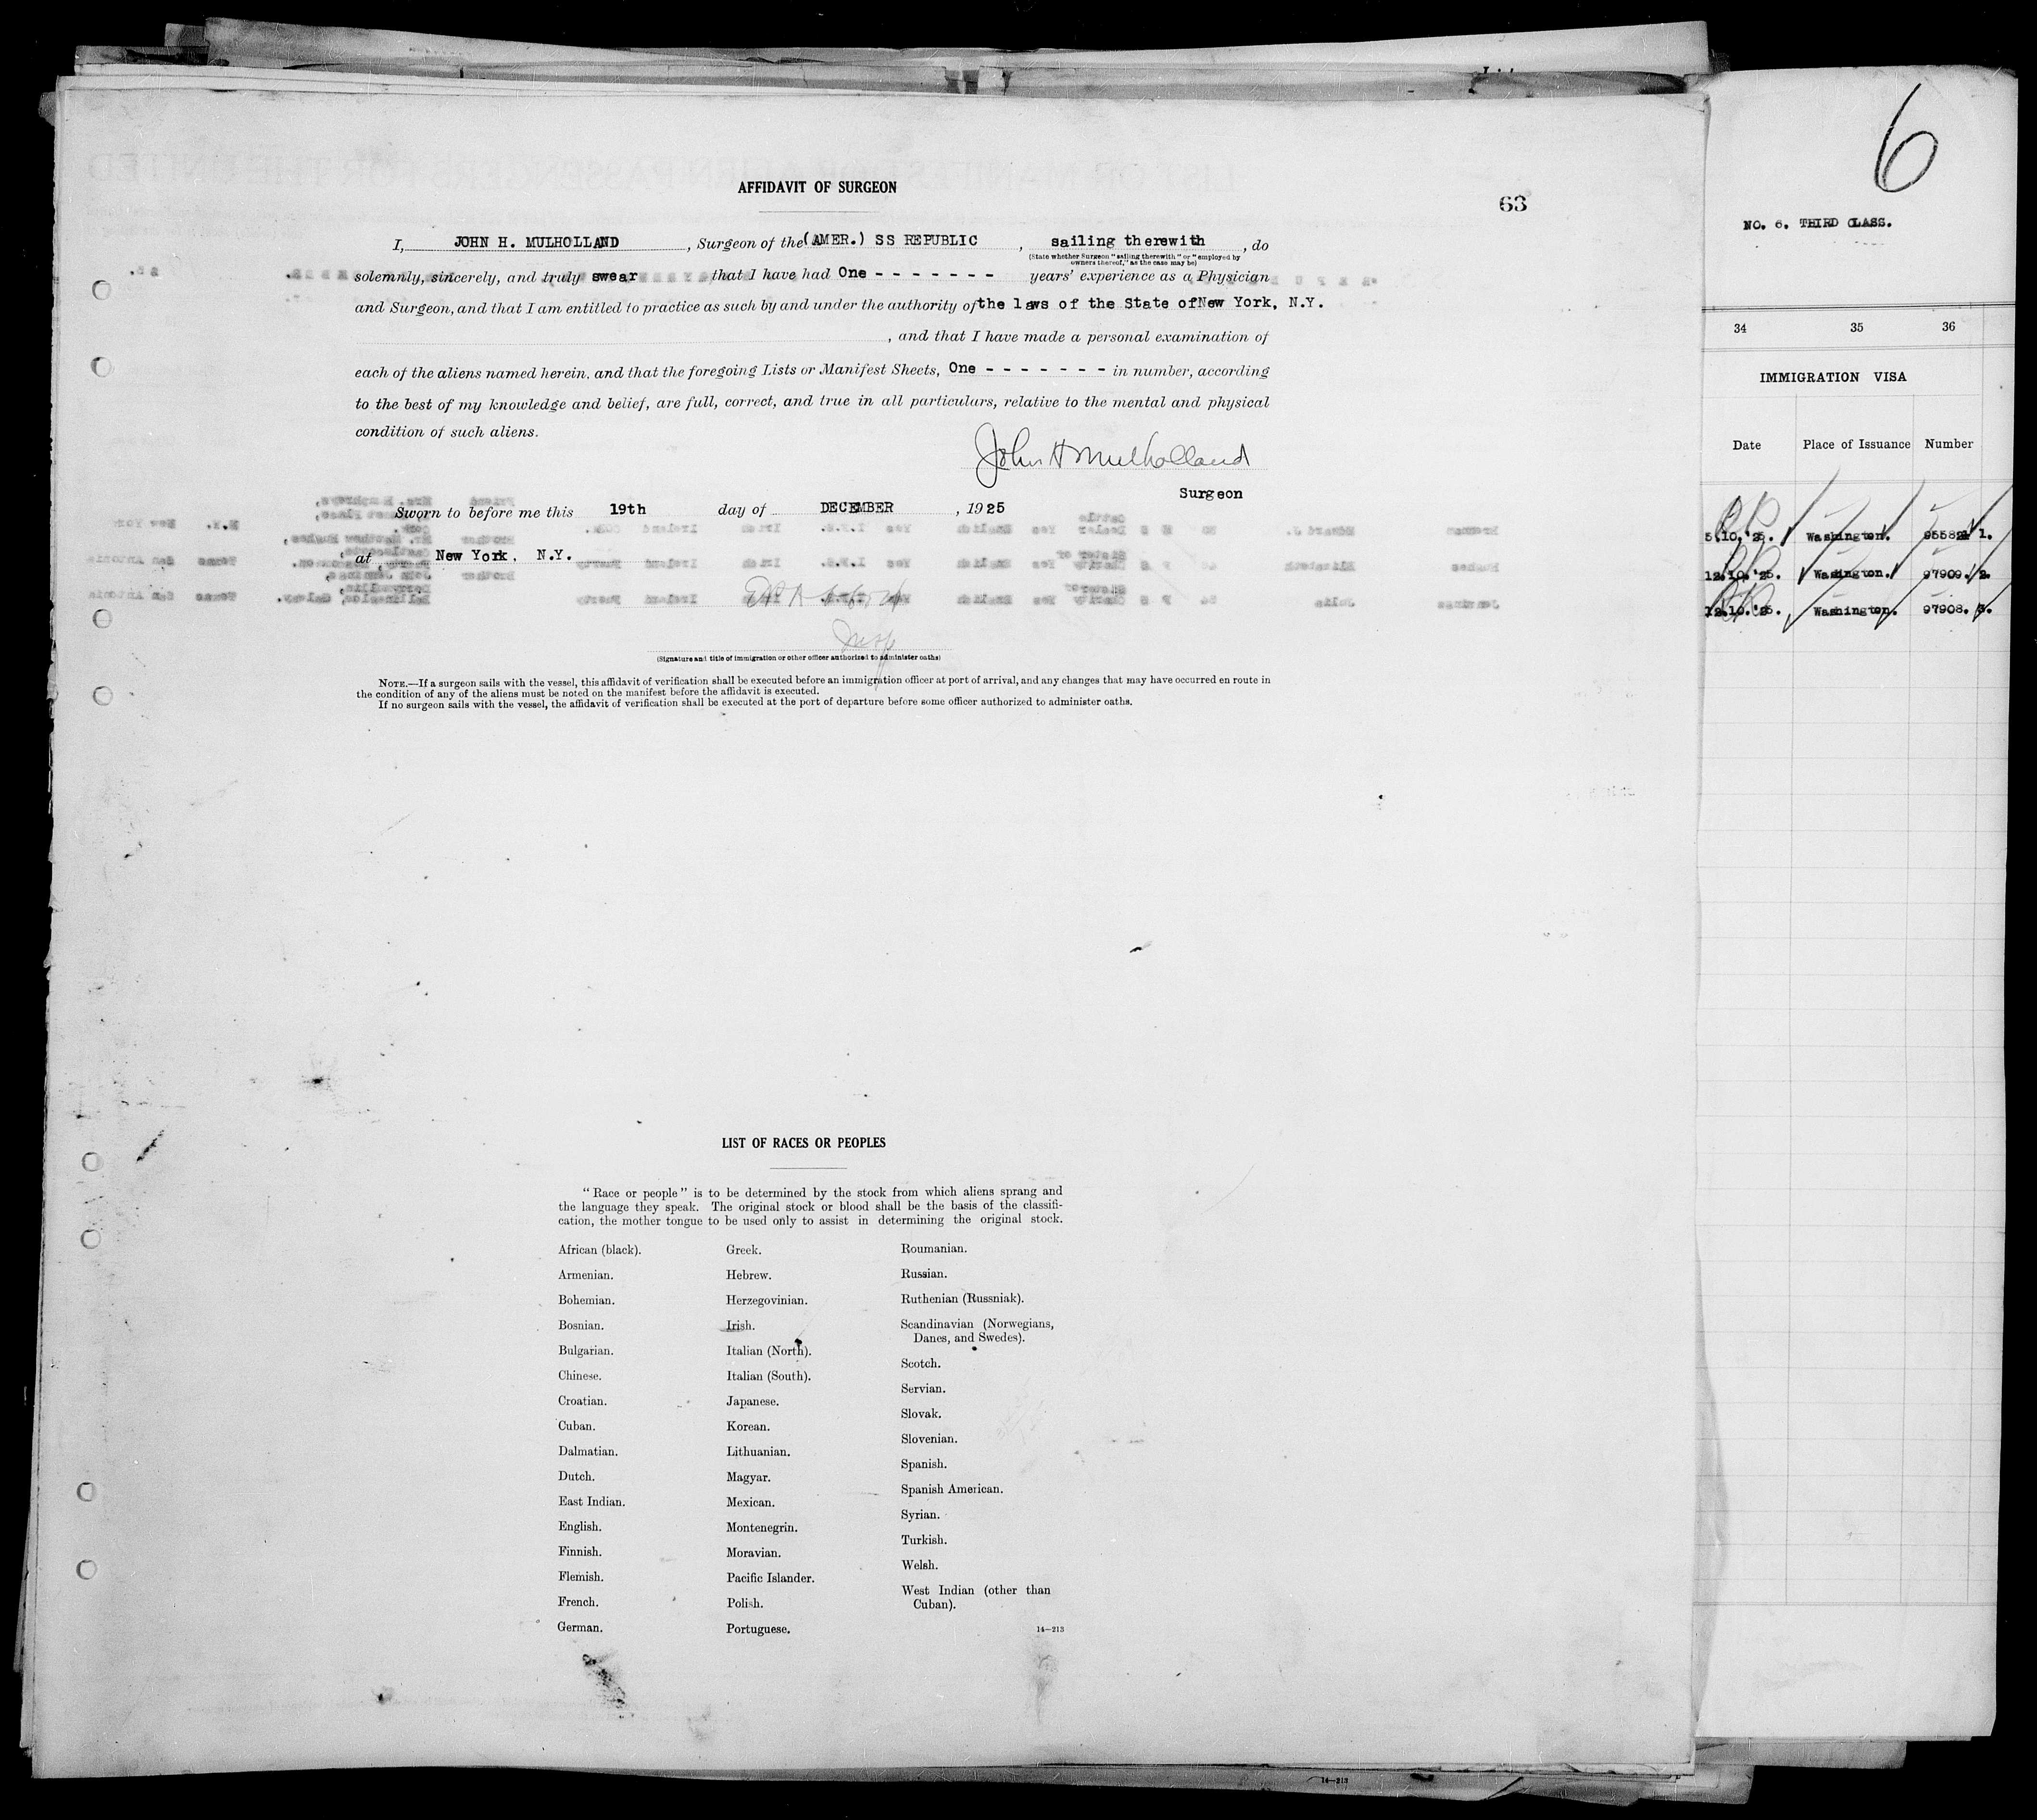 AFFIDAVIT OF SURGEON
63
I, JOHN H. MULHOLLAND, Surgeon of the (AMER.) SS REPUBLIC, sailing therewith, do
(State whether Surgeon "sailing therewith" or "employed by
owners thereof," as the case may be)
solemnly, sincerely, and truly swear that I have had One - - - - - - - years' experience as a Physician
and Surgeon, and that I am entitled to practice as such by and under the authority of the laws of the State of New York, N.Y.
, and that I have made a personal examination of
each of the aliens named herein, and that the foregoing Lists or Manifest Sheets, One - - - - - - - in number, according
to the best of my knowledge and belief, are full, correct, and true in all particulars, relative to the mental and physical
condition of such aliens.
John H Mulholland
Surgeon
Sworn to before me this 19th day of DECEMBER, 1925
at New York, N.Y.
Insp
(Signature and title of immigration or other officer authorized to administer oaths)
NOTE.—If a surgeon sails with the vessel, this affidavit of verification shall be executed before an immigration officer at port of arrival, and any changes that may have occurred en route in
the condition of any of the aliens must be noted on the manifest before the affidavit is executed.
If no surgeon sails with the vessel, the affidavit of verification shall be executed at the port of departure before some officer authorized to administer oaths.
LIST OF RACES OR PEOPLES
"Race or people" is to be determined by the stock from which aliens sprang and
the language they speak. The original stock or blood shall be the basis of the classifi-
cation, the mother tongue to be used only to assist in determining the original stock.
African (black).
Armenian.
Bohemian.
Bosnian.
Bulgarian.
Chinese.
Croatian.
Cuban.
Dalmatian.
Dutch.
East Indian.
English.
Finnish.
Flemish.
French.
German.
Greek.
Hebrew.
Herzegovinian.
Irish.
Italian (North).
Italian (South).
Japanese.
Korean.
Lithuanian.
Magyar.
Mexican.
Montenegrin.
Moravian.
Pacific Islander.
Polish.
Portuguese.
Roumanian.
Russian.
Ruthenian (Russniak).
Scandinavian (Norwegians,
Danes, and Swedes).
Scotch.
Servian.
Slovak.
Slovenian.
Spanish.
Spanish American.
Syrian.
Turkish.
Welsh.
West Indian (other than
Cuban).
14—213
14—213
6
NO. 6. THIRD CLASS.
34 35 36
IMMIGRATION VISA
Date Place of Issuance Number
5.10.'25. Washington. 1.
12.10.'25. Washington. 97909. 2.
12.10.'25. Washington. 97908. 3.